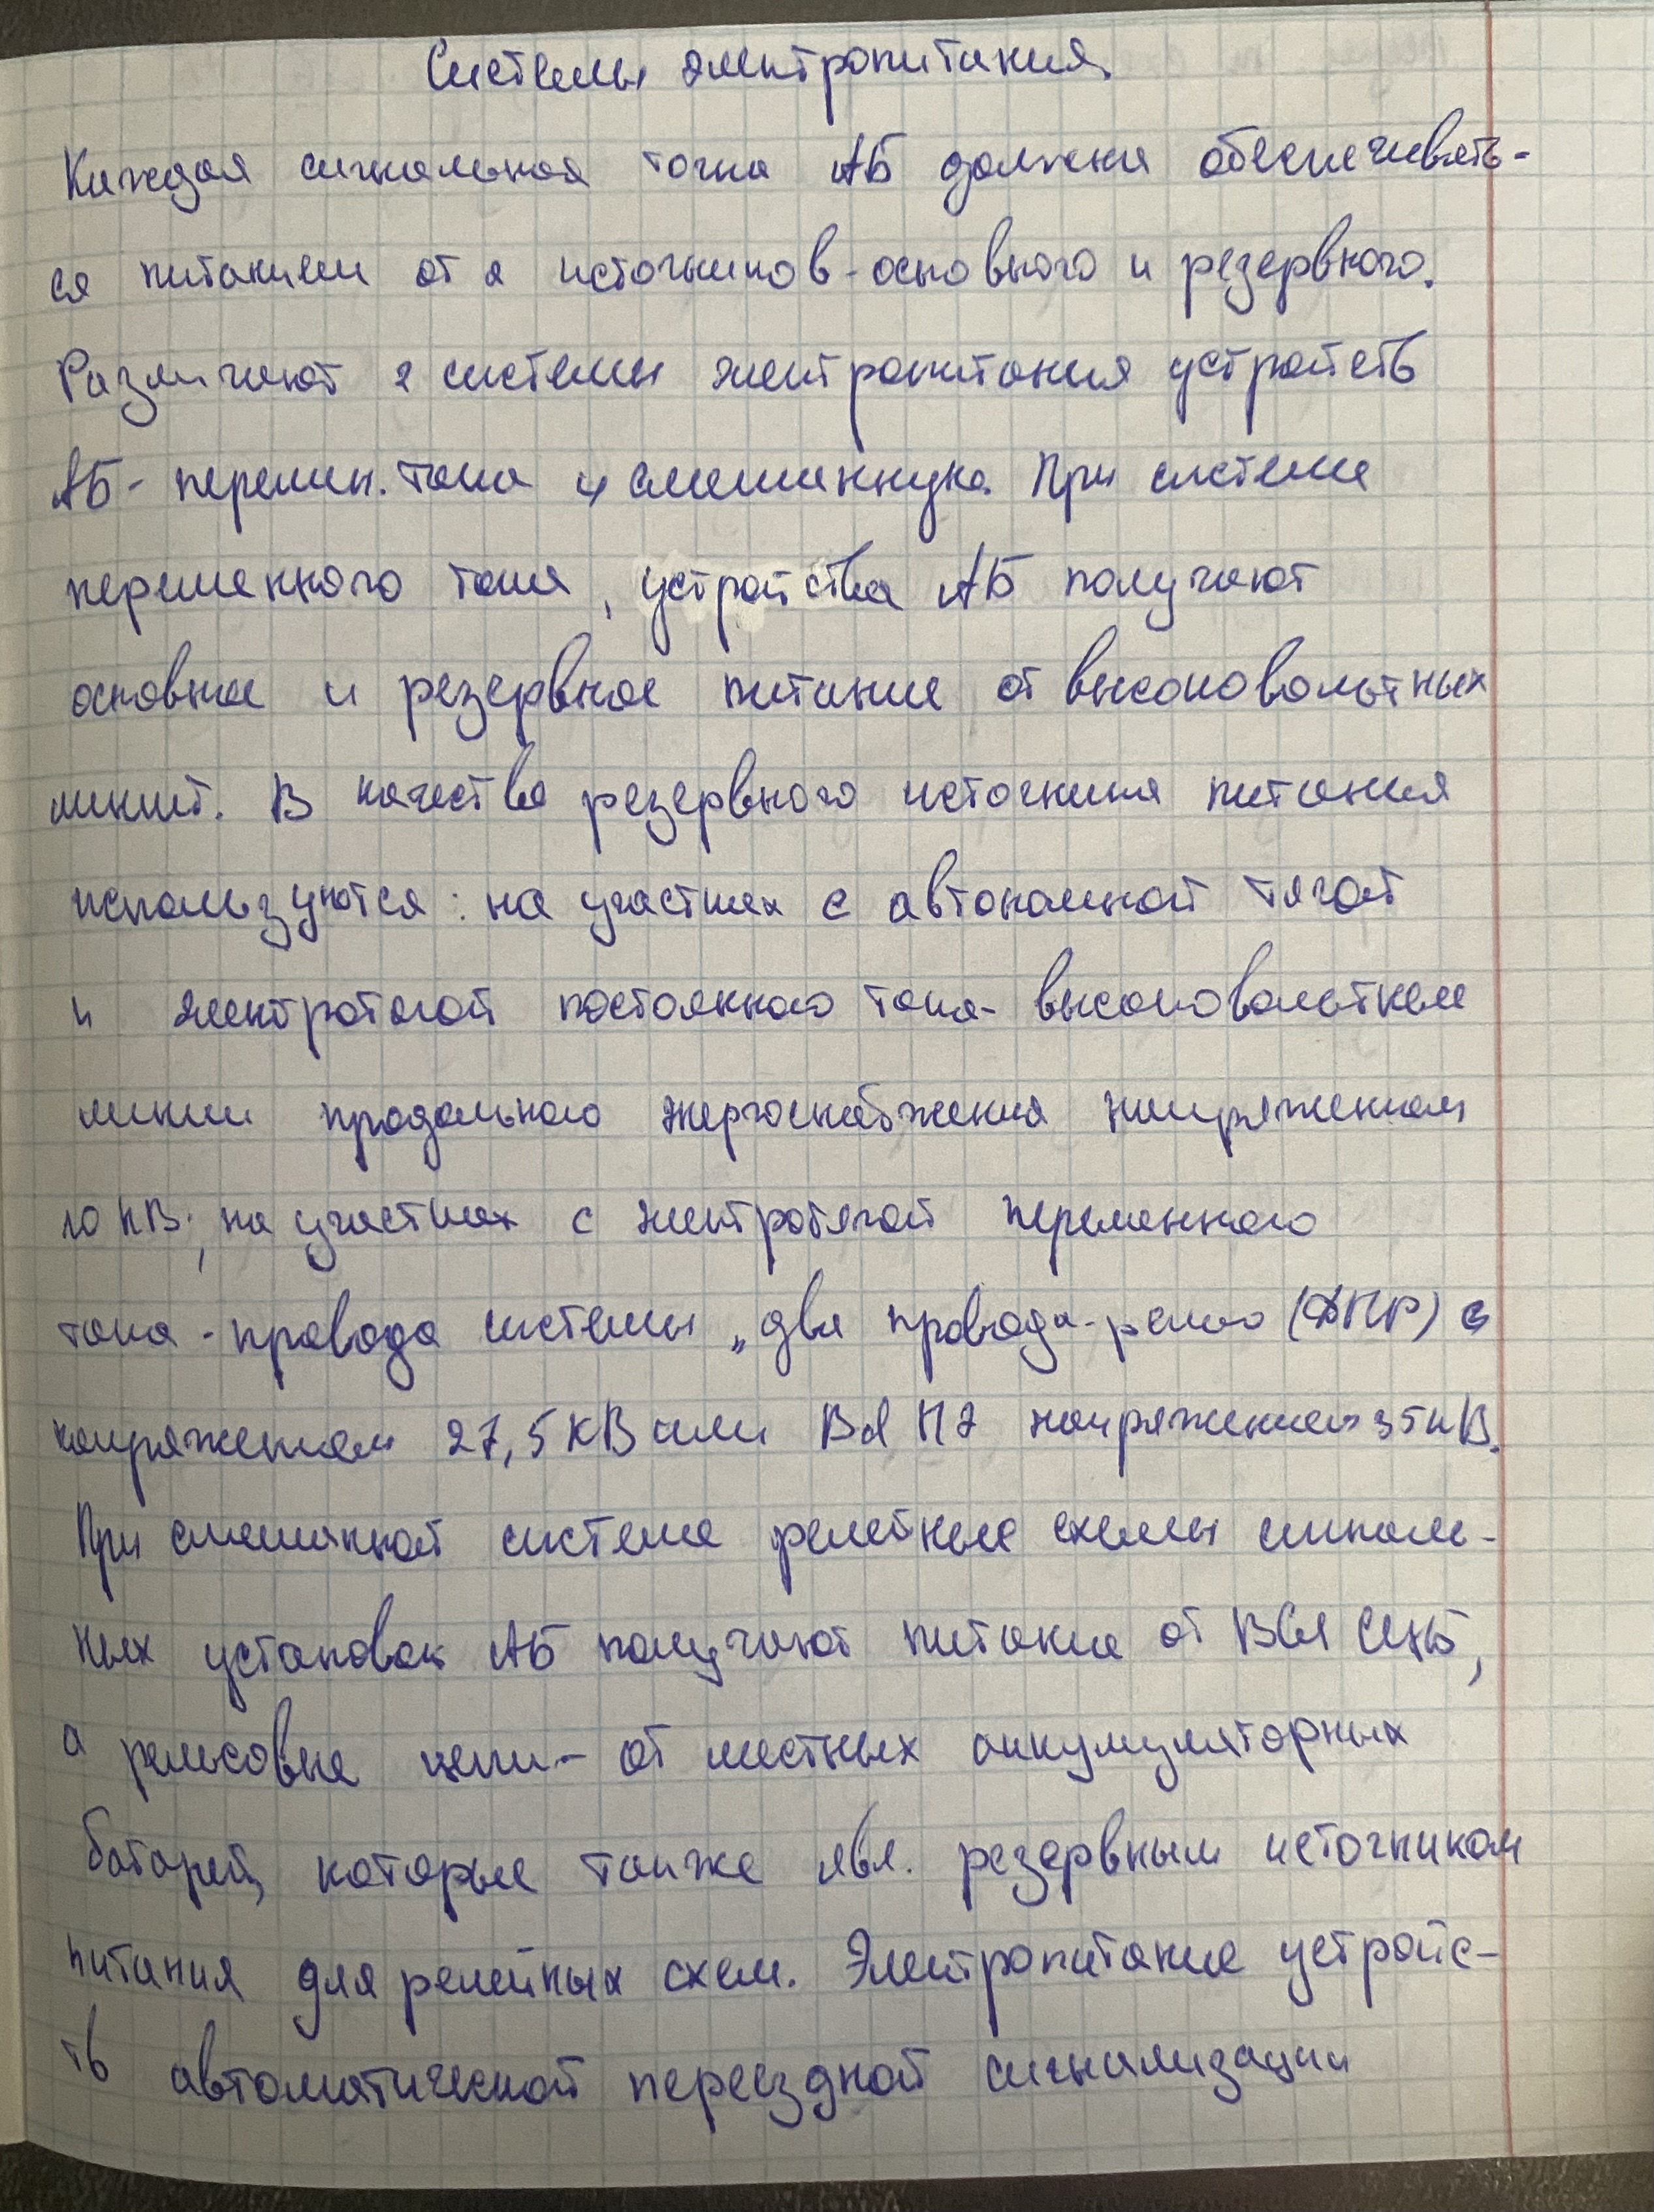 Системы электропитания.
Каждая сигнальная точка АБ должна обеспечивать-
ся питанием от 2 источников - основного и резервного.
Различают 2 системы электропитания устройств
АБ - перемен. тока и смешанную. При системе
переменного тока, устройства АБ получают
основное и резервное питание от высоковольтных
линий. В качестве резервного источника питания
используются: на участках с автономной тягой
и электротягой постоянного тока - высоковольтные
линии продольного энергоснабжения напряжением
10 кВ; на участках с электротягой переменного
тока - провода системы „два провода - рельс (ДПР) с
напряжением 27,5 кВ или ВЛ ПЭ напряжением 35 кВ.
При смешанной системе релейные схемы сигналь-
ных установок АБ получают питание от ВСЛ СЦБ,
а рельсовые цепи - от местных аккумуляторных
батарей, которые также явл. резервным источником
питания для релейных схем. Электропитание устройс-
тв автоматической переездной сигнализации